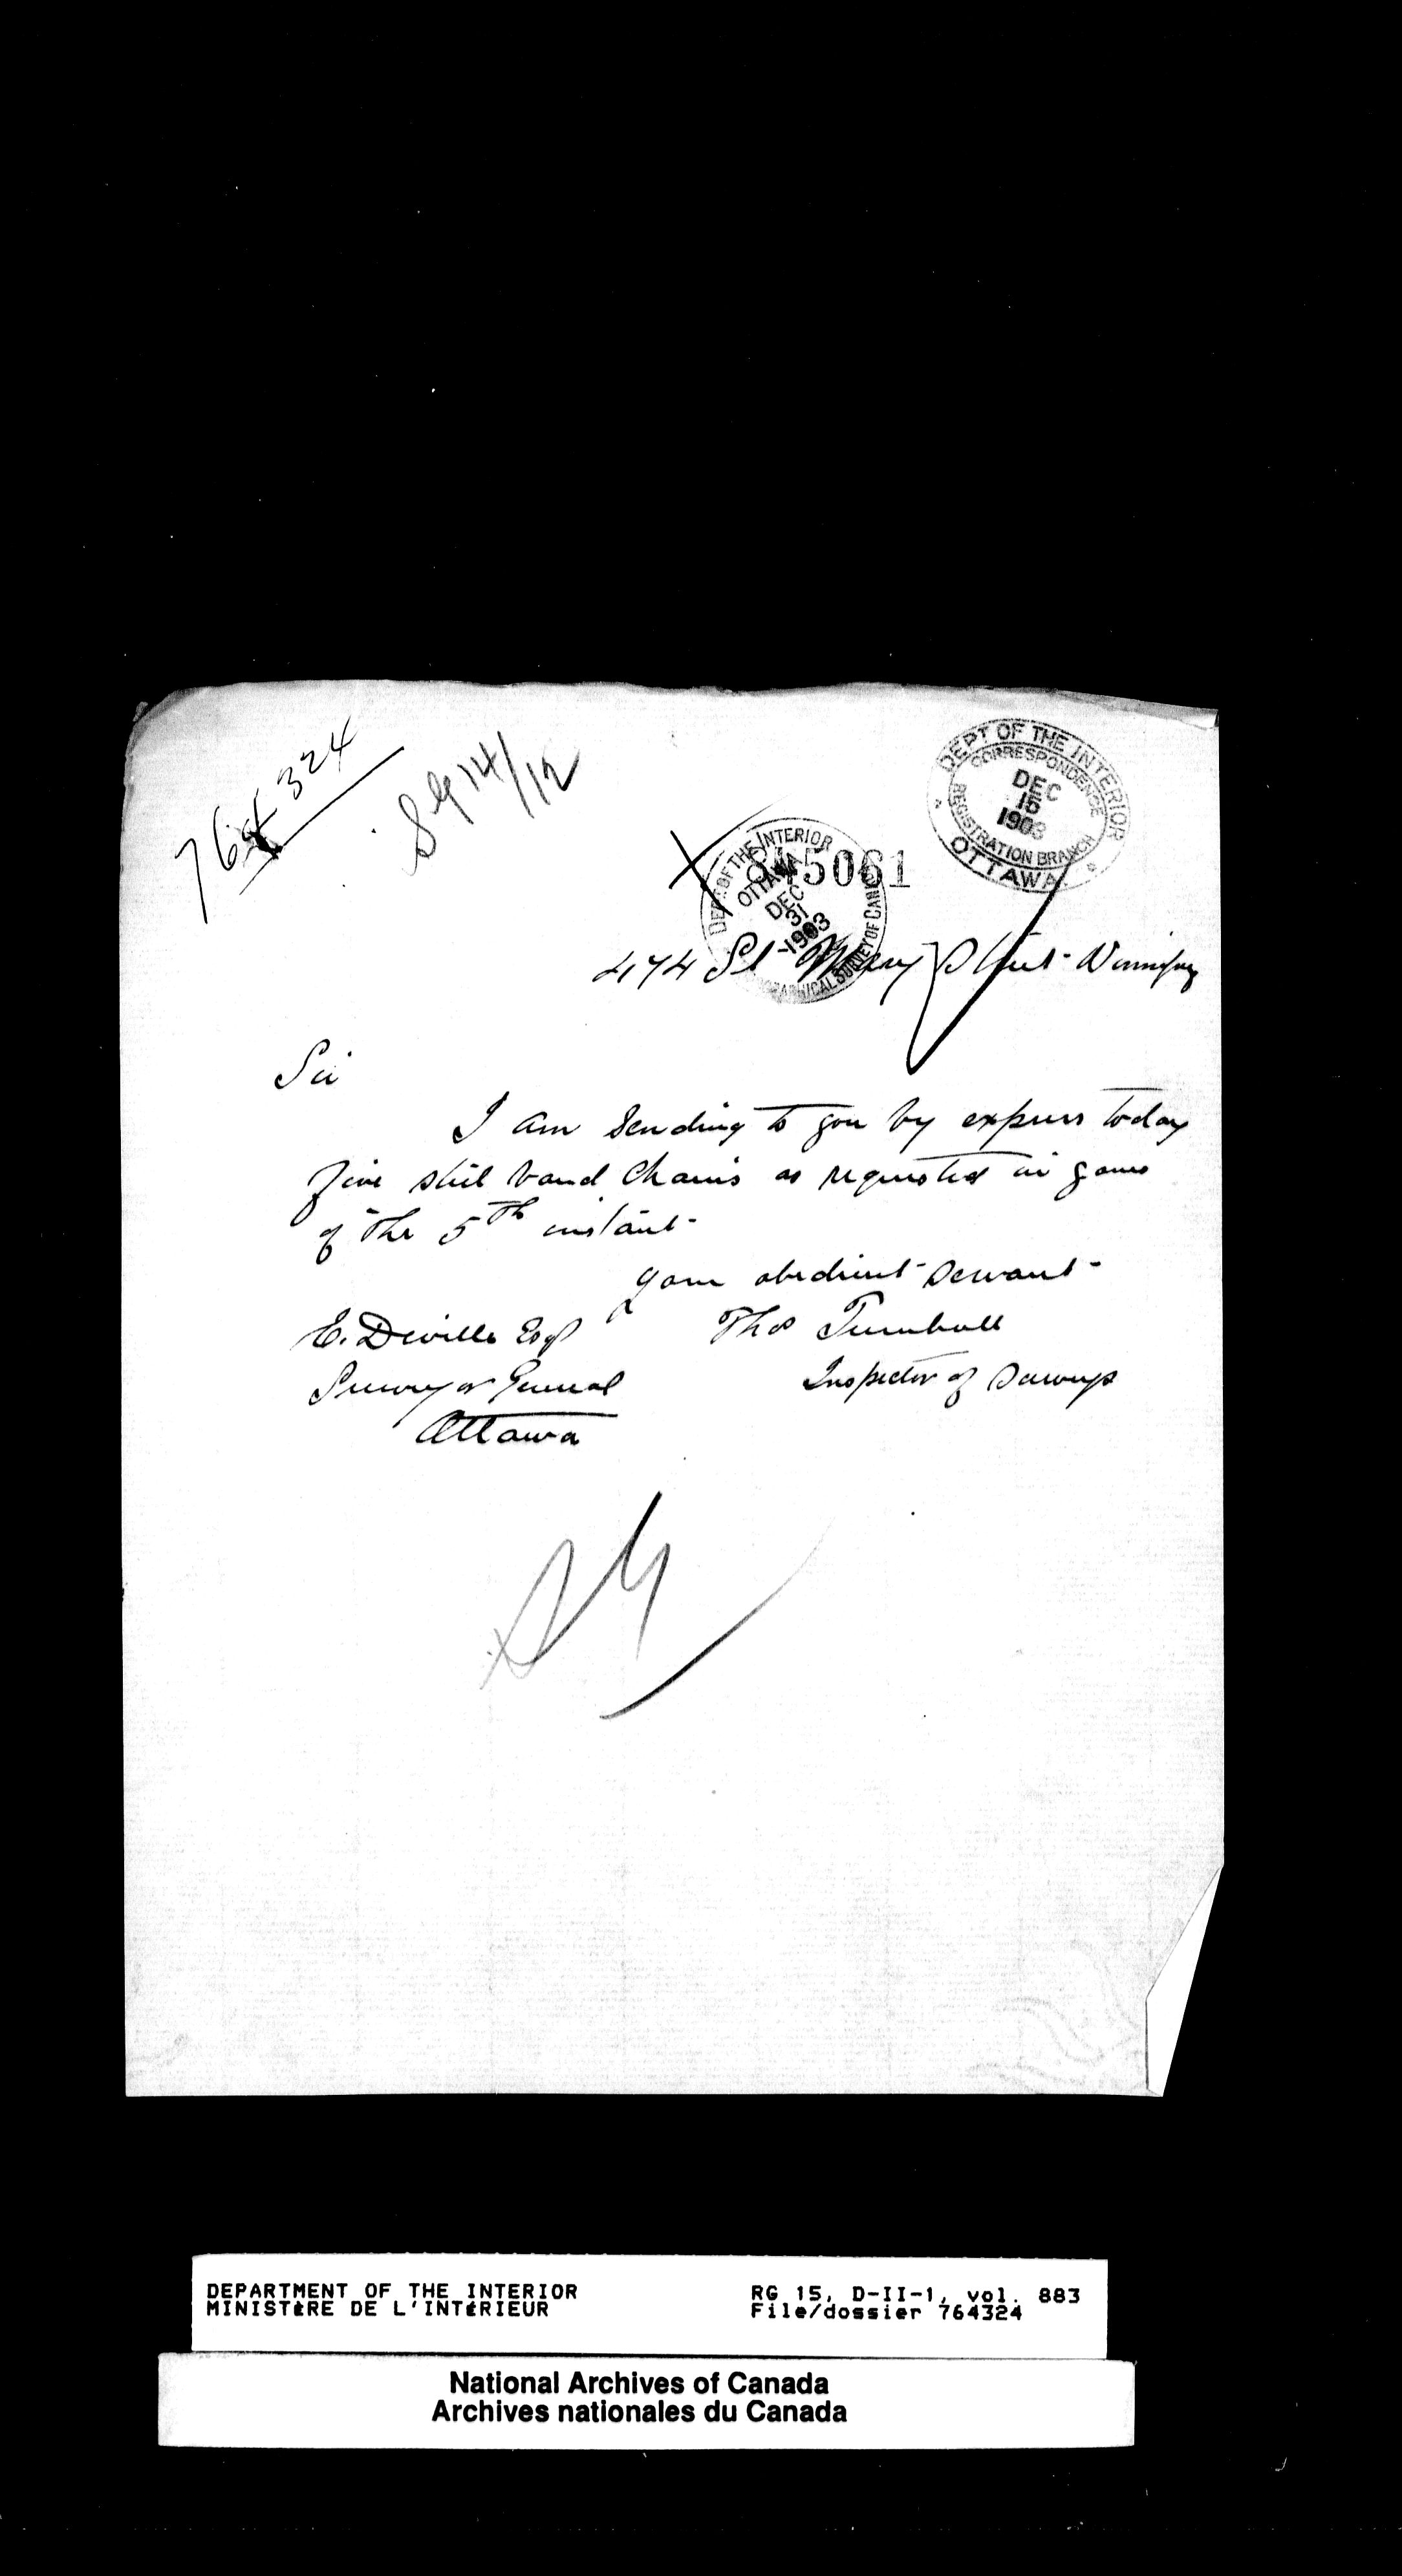 764324
SG 14/12
DEPT OF THE INTERIOR
CORRESPONDENCE
DEC
15
1903
REGISTRATION BRANCH
OTTAWA
DEPT OF THE INTERIOR
OTTAWA
DEC
31
1903
SURVEY OF CANADA
845061
474 St Mary Street Winnipeg
Sir
I am sending to you by express today
five steel band chains as requested in yours
of the 5th instant
your obedient servant
Thos Turnbull
Inspector of Surveys
E. Deville Esq
Surveyor General
Ottawa
SG
DEPARTMENT OF THE INTERIOR
MINISTÈRE DE L'INTÉRIEUR
RG 15, D-II-1, vol. 883
File/dossier 764324
National Archives of Canada
Archives nationales du Canada